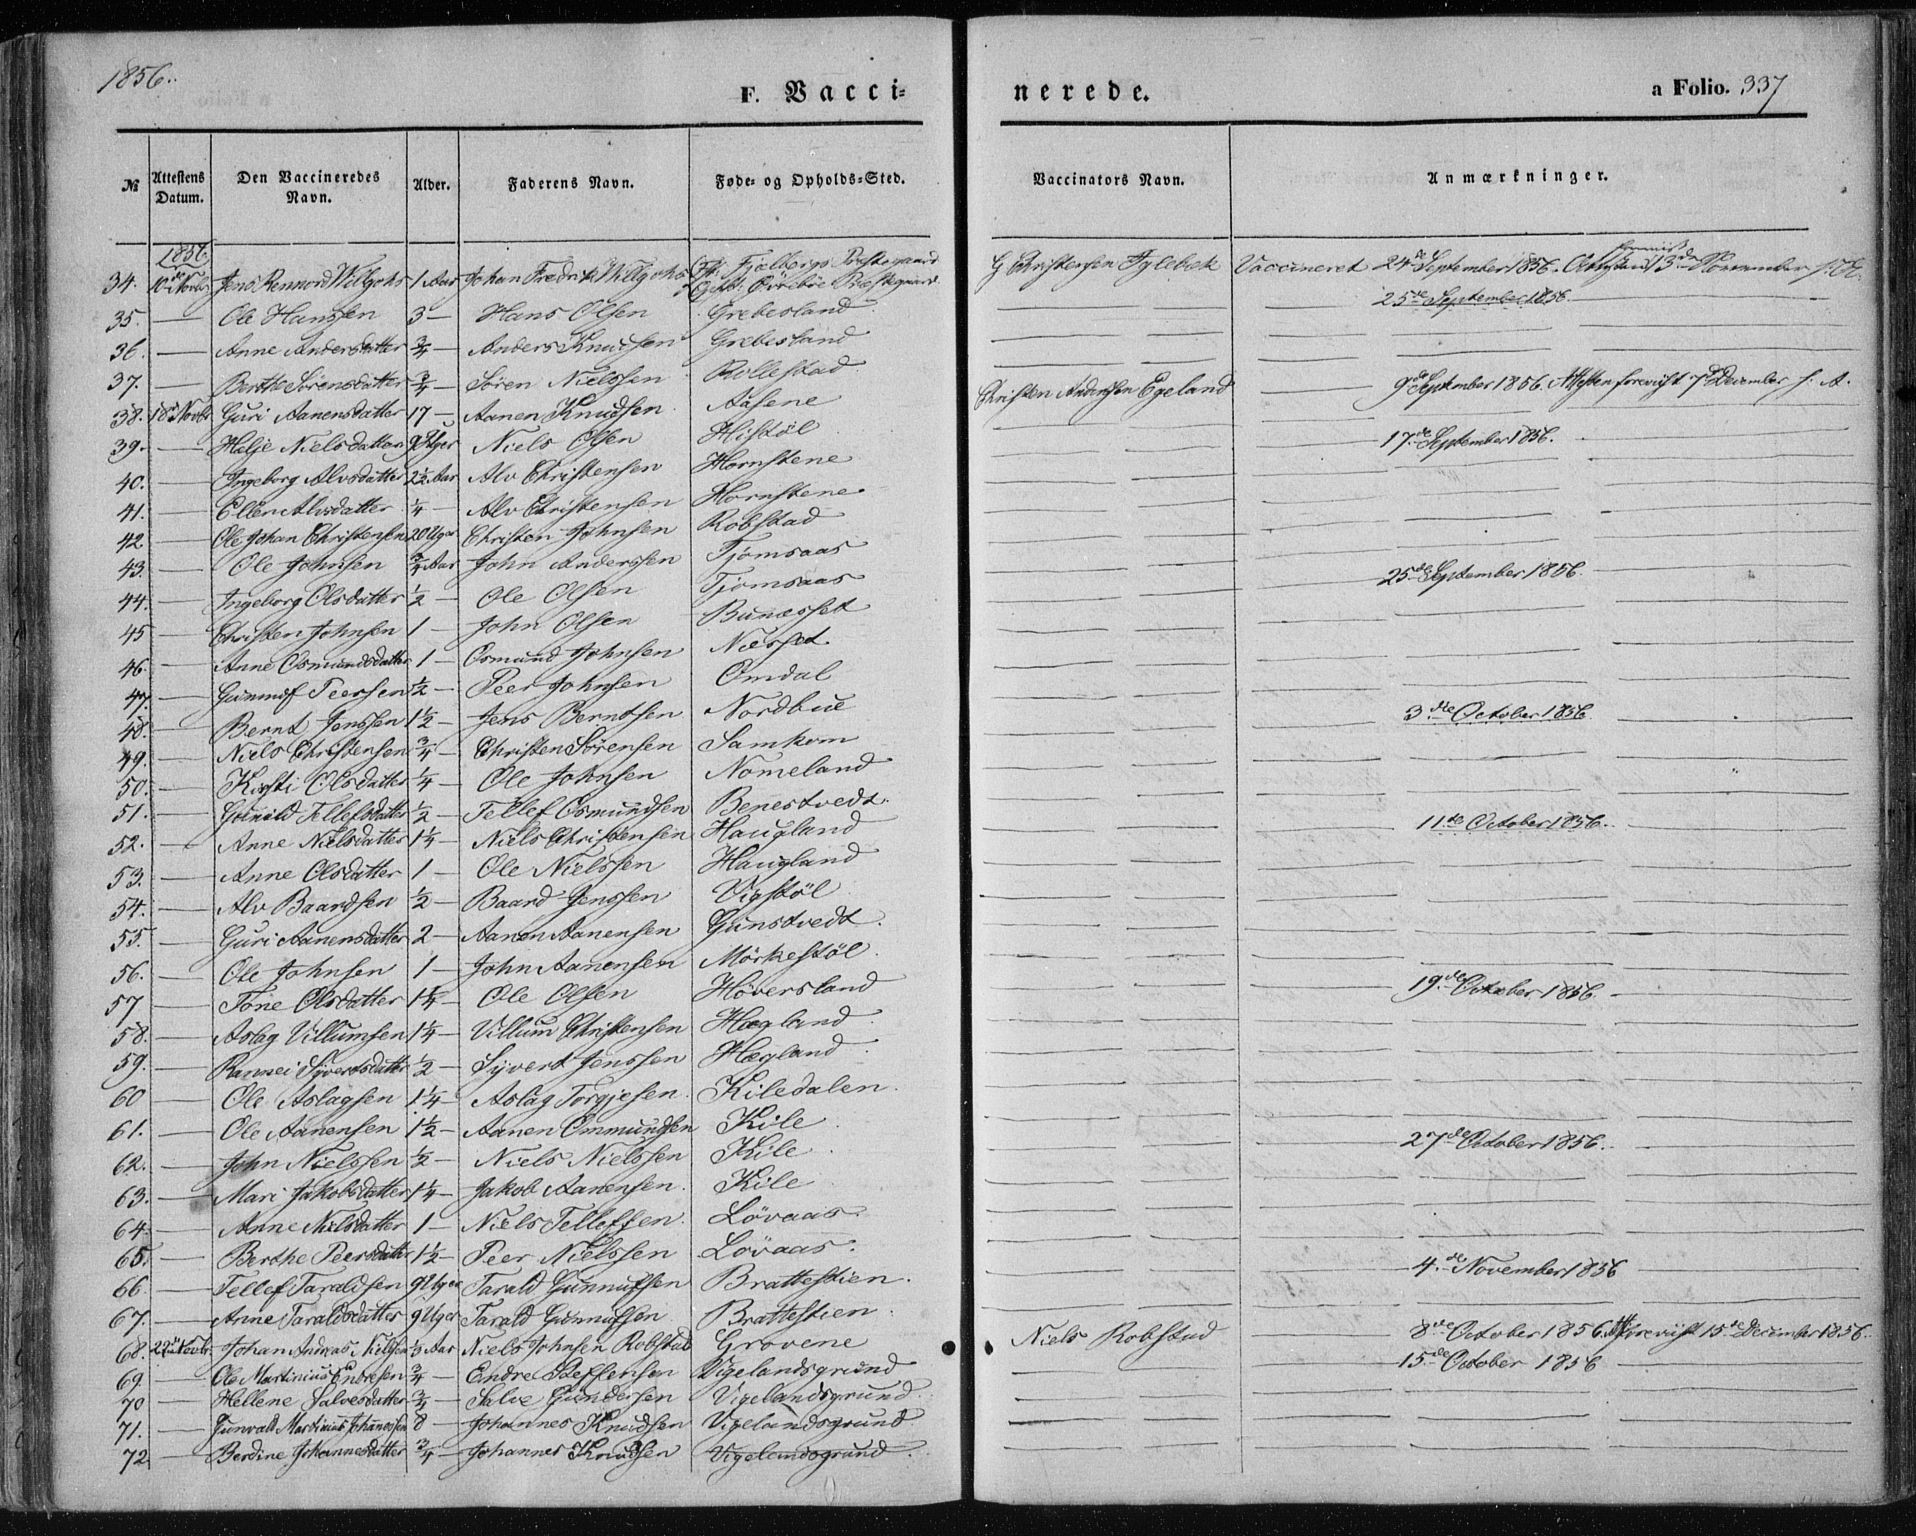 1856.
F. Vacci-
nerede.
a Folio. 337
№ Attestens Datum. Den Vaccineredes Navn. Alder. Faderens Navn. Føde- og Opholds-Sted. Vaccinators Navn. Anmærkninger.
1856
34. 10de Novbr Jens Rennord Willgohs 1 Aar Johan Fredrik Willgohs Ft. Fjelbergs Præstegaard Opht. Øvrebøe Præstegaard. G Christensen Fylebek Vaccineret 24de September 1856. 13de November
35. — Ole Hanssen 3 — Hans Olsen Grebesland 25de September 1856.
36. — Anne Andersdatter 3/4 — Anders Knudsen Grebesland
37. — Berthe Sørensdatter 3/4 — Søren Nielssen Rollestad
38. 18de Novbr Guri Aanensdatter 17 — Aanen Knudsen Aasene Christen Andersen Egeland 9de September 1856. Attesten foreviist 7de December s. A.
39. — Helje Nielsdatter 9 Uger Niels Olsen Histøl 17de September 1856.
40. — Ingeborg Alvsdatter 2 1/2 Aar Alv Christensen Hornstene
41. — Ellen Alvsdatter 1/4 — Alv Christensen Hornstene
42 — Ole Johan Christensen 20 Uger Christen Johnsen Robstad
43. — Ole Johnsen 3/4 Aar John Anderssen Tjomsaas
44. — Ingeborg Olsdatter 1/2 — Ole Olsen Tjomsaas 25de September 1856.
45 — Christen Johnsen 1 — John Olsen Bunesset
46. — Anne Osmundsdatter 1 — Osmund Johnsen Næsset
47. — Gunnuf Peersen 1/2 — Peer Johnsen Omdal
48. — Bernt Jenssen 1 1/2 — Jens Berntsen Nordbue 3die October 1856
49. — Niels Christensen 3/4 — Christen Sørensen Samkom
50. — Kirsti Olsdatter 1/4 — Ole Johnsen Nomeland
51. — Gunild Tellefsdatter 1/2 — Tellef Osmundsen Benestvedt
52. — Anne Nielsdatter 1 1/4 — Niels Christensen Haugland 11de October 1856.
53. — Anne Olsdatter 1 — Ole Nielssen Haugland
54. — Alv Baardsen 1/2 — Baard Jenssen Vigstøl
55. — Guri Aanensdatter 2 — Aanen Aanensen Gunstvedt
56. — Ole Johnsen 1 — John Aanensen Mørkestøl
57 — Tone Olsdatter 1 1/4 — Ole Olsen Høversland 19de October 1856.
58. — Aslag Villumsen 1 1/4 — Villum Christensen Hægland
59. — Rannei Syvertsdatter 1/2 — Syvert Jenssen Hægland
60 — Ole Aslagsen 1 1/4 — Aslag Torgjesen Kiledalen
61. — Ole Aanensen 1 1/2 — Aanen Ommundsen Kile
62. — John Nielssen 1/2 — Niels Nielssen Kile 27de October 1856.
63. — Mari Jakobsdatter 1 1/4 — Jakob Aanensen Kile
64. — Anne Nielsdatter 1 — Niels Tellefsen Løvaas
65. — Berthe Peersdatter 1 1/2 — Peer Nielssen Løvaas
66. — Tellef Taraldsen 9 Uger Tarald Gunnufsen Brattestien 4de November 1856
67. — Anne Taraldsdatter 9 Uger Tarald Gunnufsen Brattestien
68. 22de Novbr Johan Andreas Nielsen 1/3 Aar Niels Johnsen Robstad Grovene Niels Robstad 8de October 1856 Att. foreviist 15de December 1856.
69 — Ole Martinius Endresen 3/4 — Endre Steffensen Vigelandsgrund 15de October 1856
70 — Hellene Salvesdatter 3/4 — Salve Gundersen Vigelandsgrund
71. — Gunvald Martinius Johannessen 8 — Johannes Knudsen Vigelandsgrund
72 — Berdine Johannesdatter 3/4 — Johannes Knudsen Vigelandsgrund